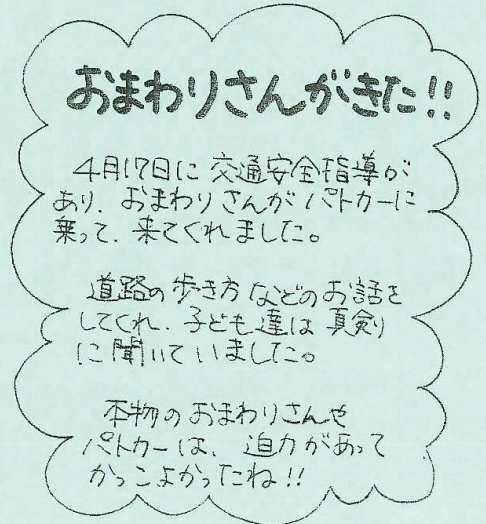 おまわりさんがきた!!
4月17日に交通安全指導が
あり、おまわりさんがパトカーに
乗って、来てくれました。
道路の歩き方などのお話を
してくれ、子ども達は真剣
に聞いていました。
本物のおまわりさんや
パトカーは、迫力があって
かっこよかったね!!